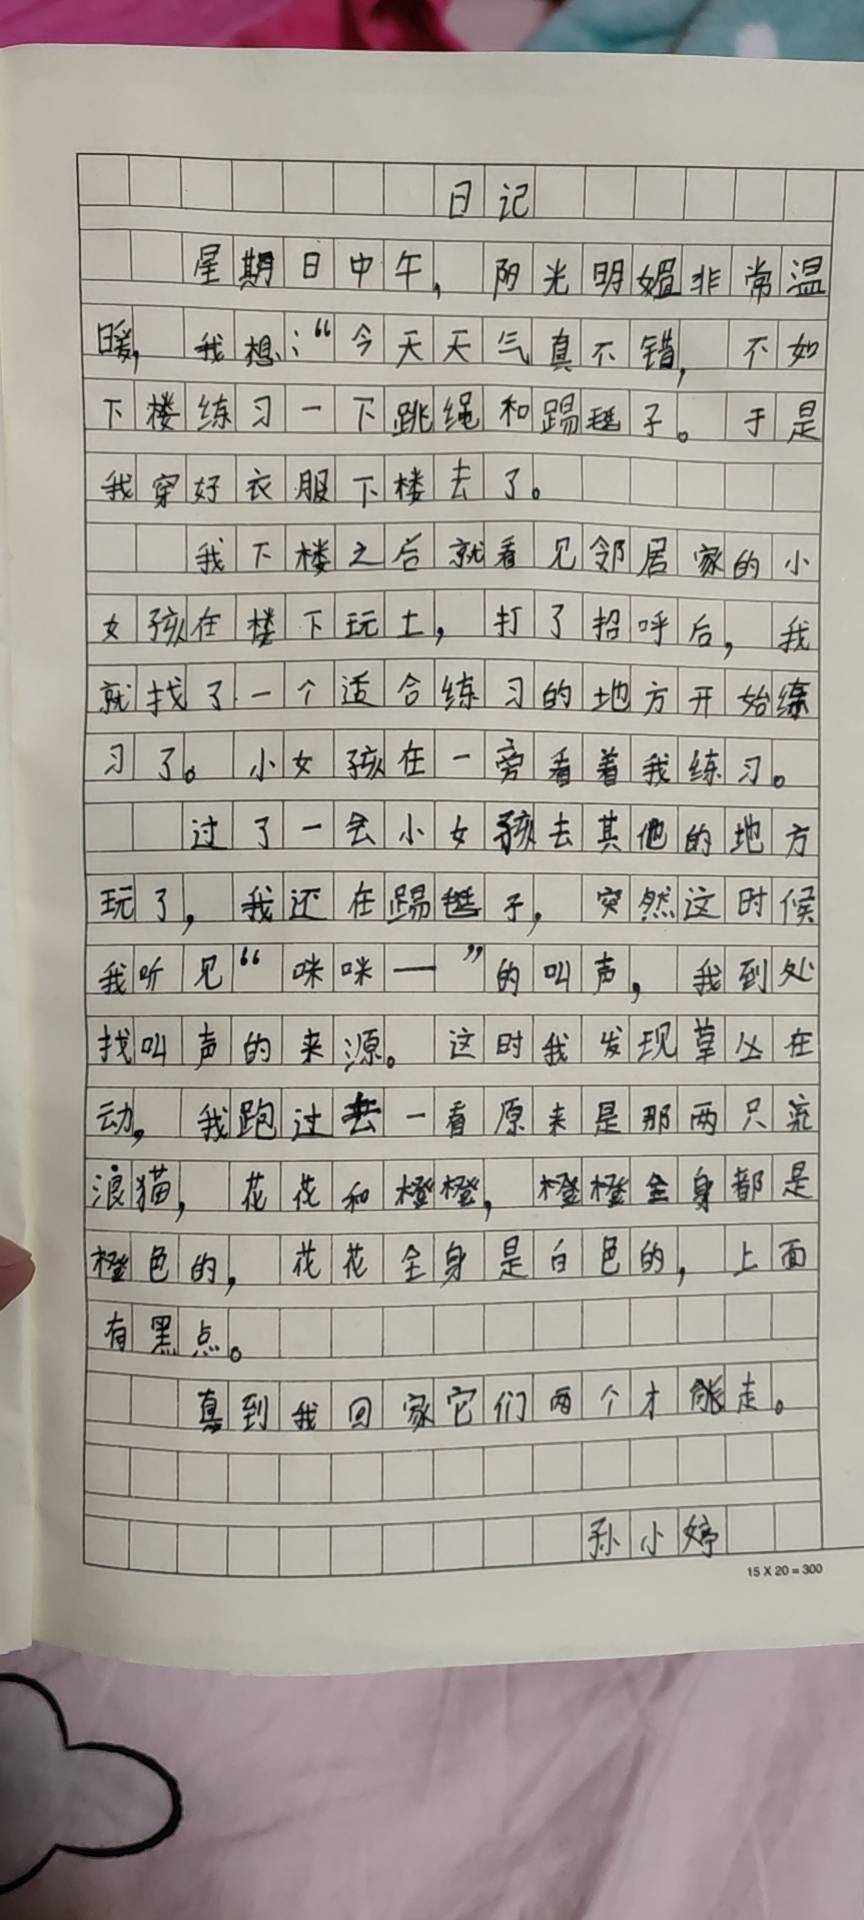 日记
星期日中午，阳光明媚非常温
暖，我想：“今天天气真不错，不如
下楼练习一下跳绳和踢毽子。于是
我穿好衣服下楼去了。
我下楼之后就看见邻居家的小
女孩在楼下玩土，打了招呼后，我
就找了一个适合练习的地方开始练
习了。小女孩在一旁看着我练习。
过了一会小女孩去其他的地方
玩了，我还在踢毽子，突然这时候
我听见“咪咪——”的叫声，我到处
找叫声的来源。这时我发现草丛在
动，我跑过去一看原来是那两只流
浪猫，花花和橙橙，橙橙全身都是
橙色的，花花全身是白色的，上面
有黑点。
真到我回家它们两个才能走。
孙小婷
15 X 20 = 300